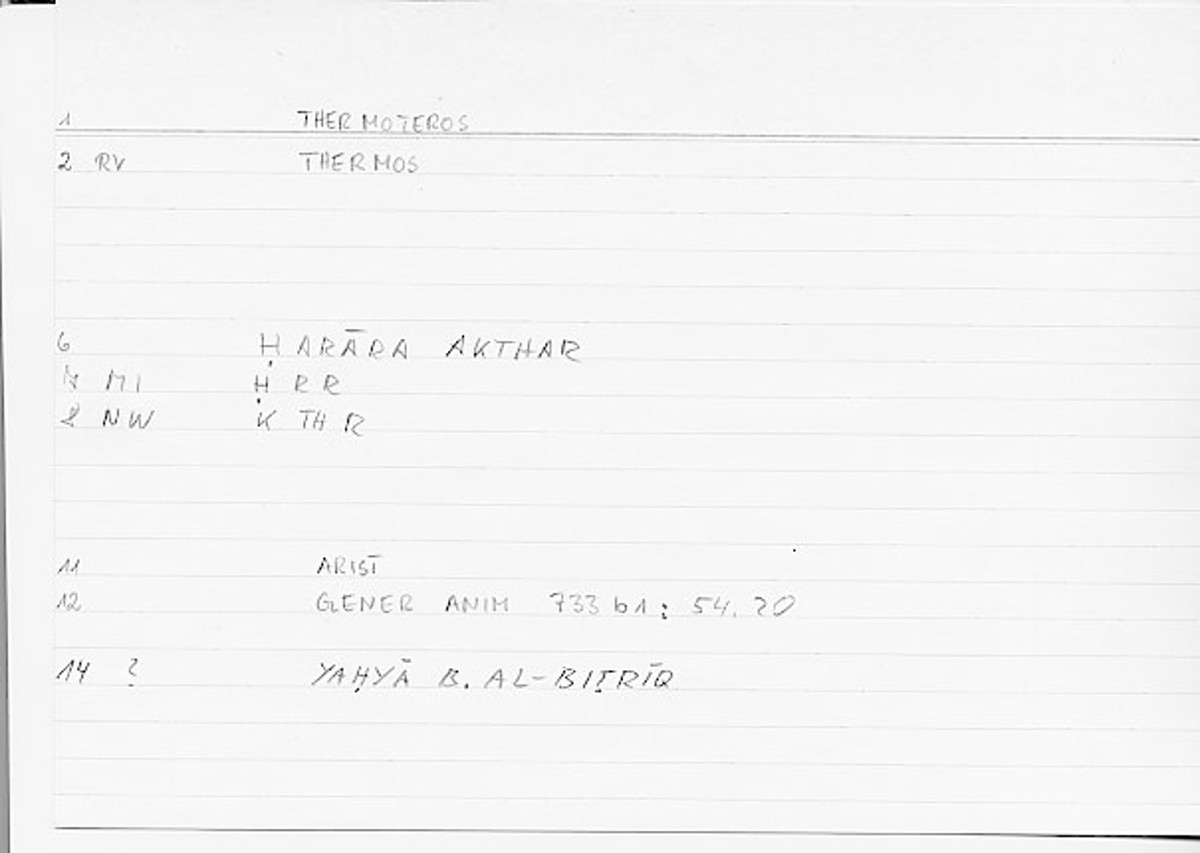 1 THERMOTEROS
2 RV THERMOS
6 ḤARĀRA AKTHAR
7 MI Ḥ R R
8 NW K TH R
11 ARIST
12 GENER ANIM 733 b1 : 54.20
14 ? YAḤYĀ B. AL-BIṬRĪQ